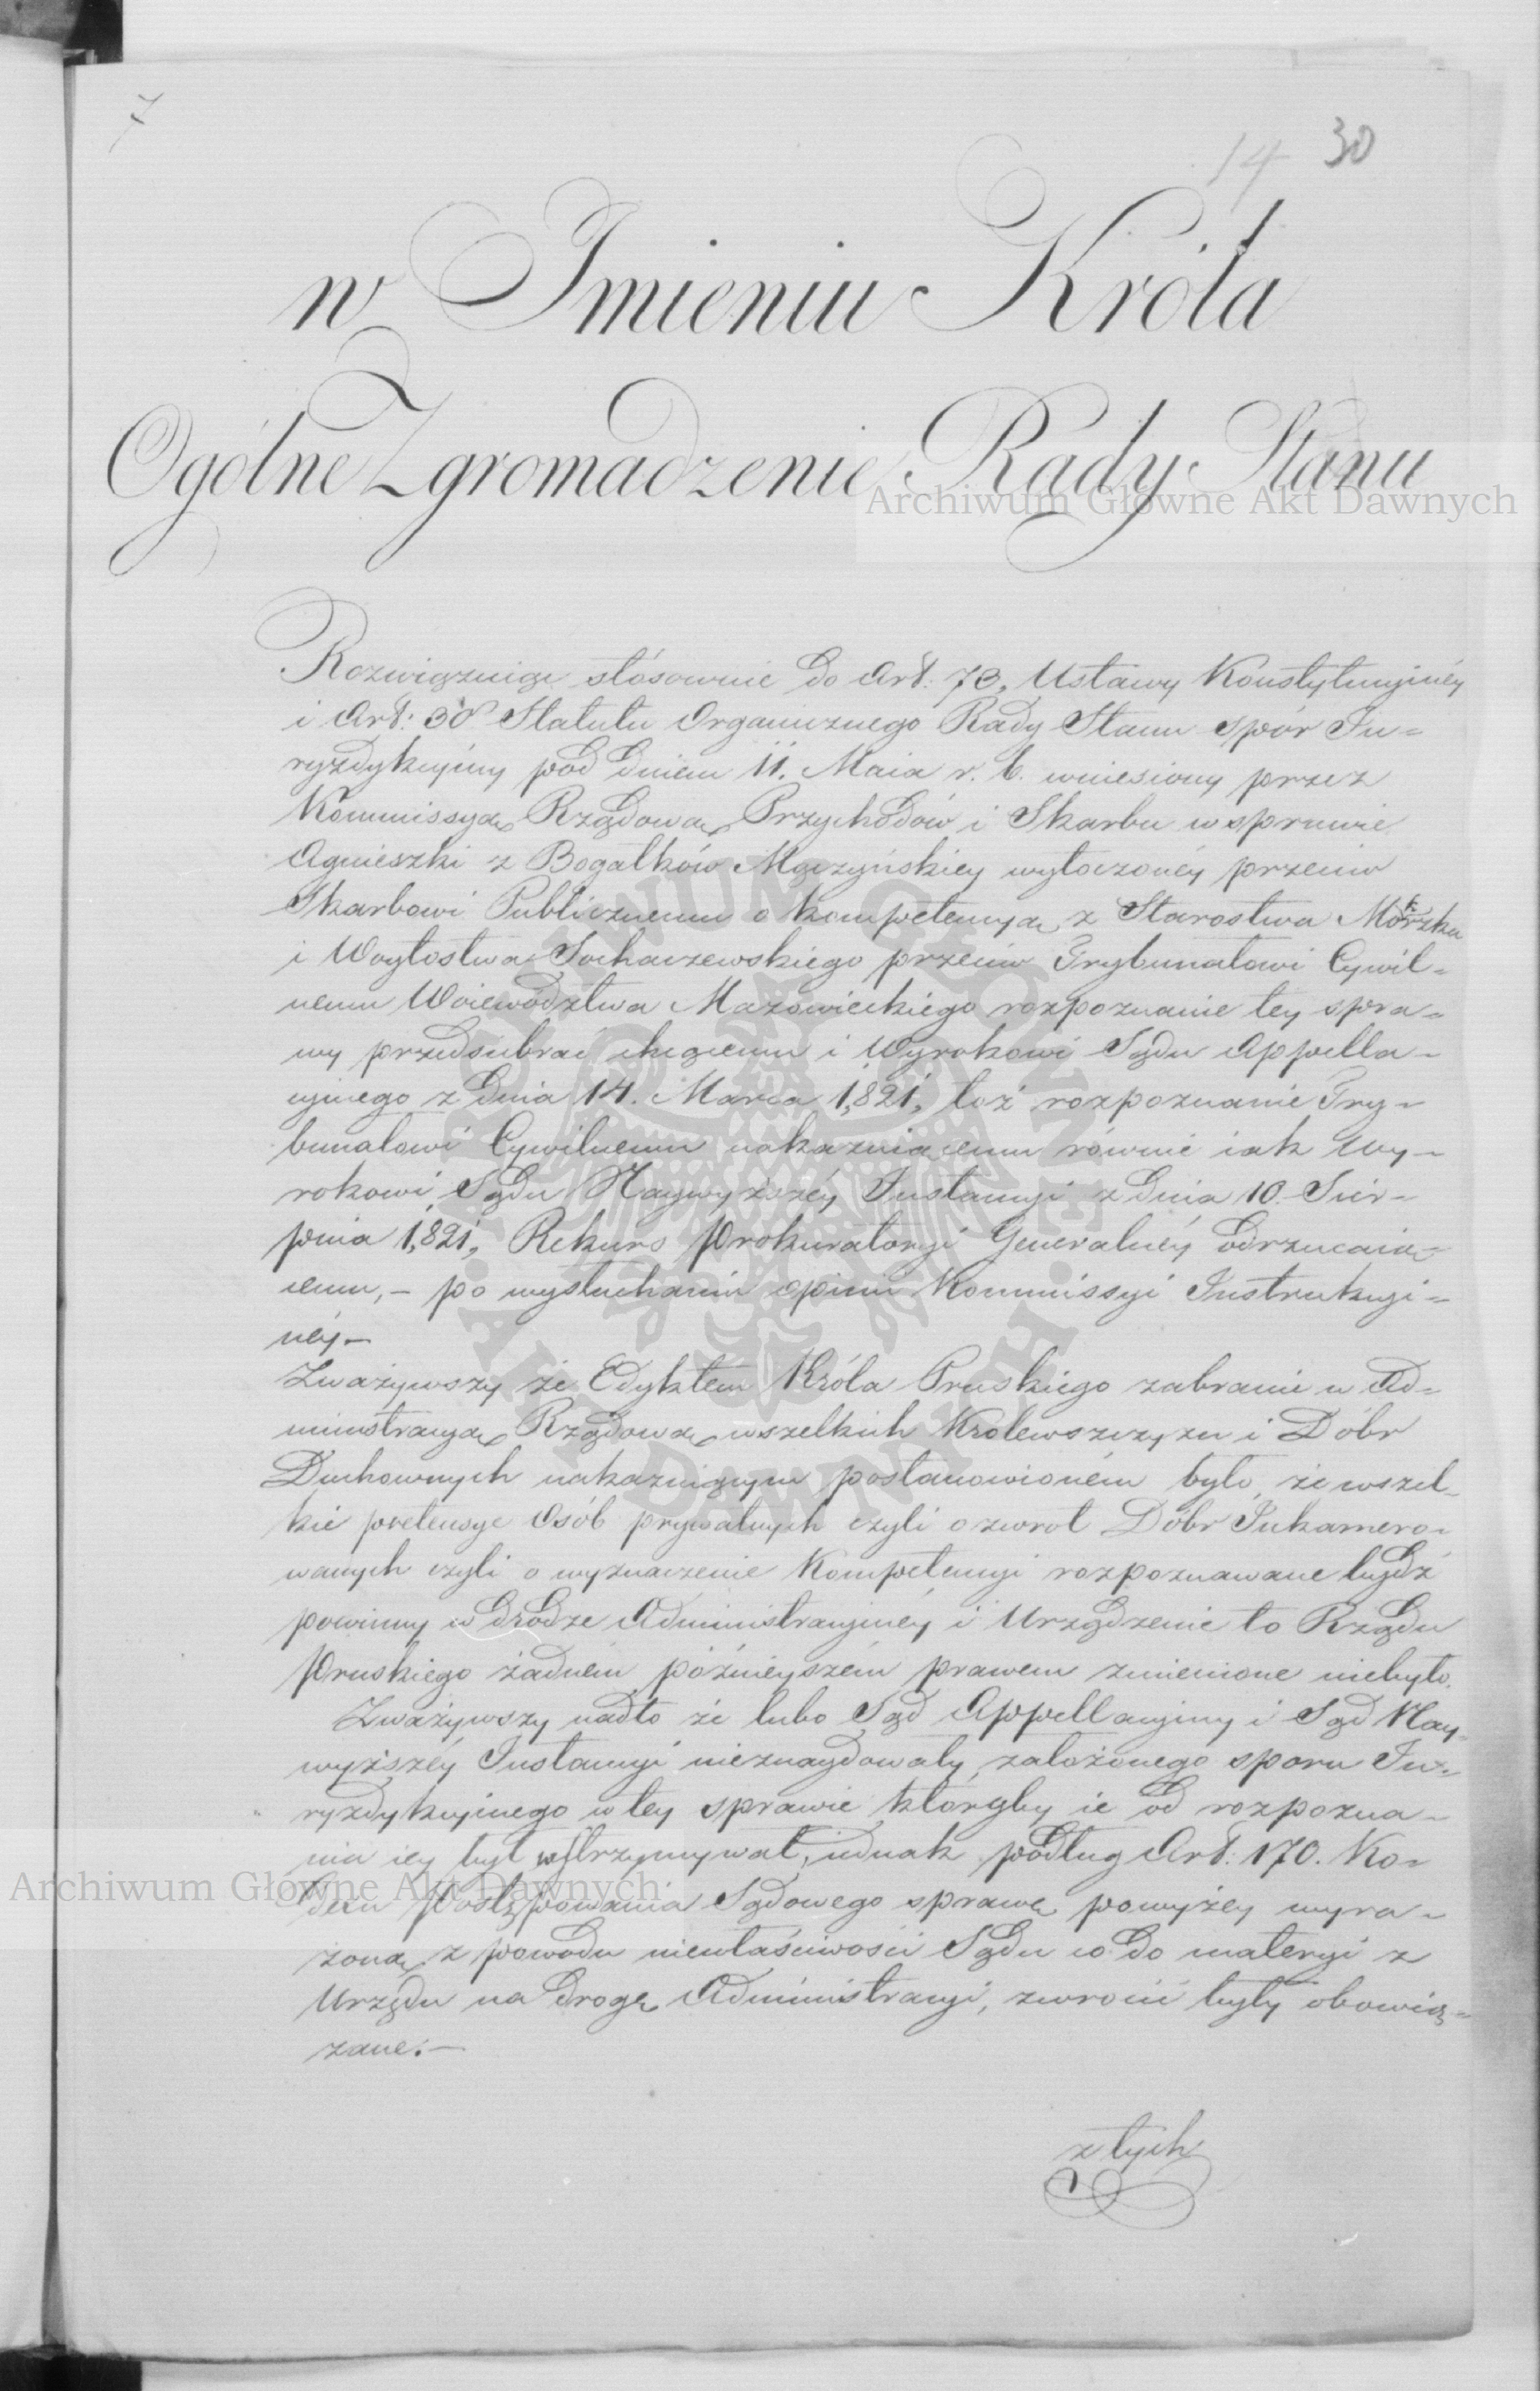 7
14 30
w Imieniu Króla
Ogólne Zgromadzenie Rady Stanu
Archiwum Główne Akt Dawnych
Rozwiązuiąc stósownie do Art: 73, Ustawy Konstytucyinéy
i Art: 30 Statutu Organicznego Rady Stanu spór Ju=
ryzdykcyiny pod dniem 11. Maia r. b. wniesiony przez
Kommissyą Rządową Przychodów i Skarbu w sprawie
Agnieszki z Bogatków Mączyńskiey wytoczonéy przeciw
Skarbowi Publicznemu o kompetencyą z Starostwa
i Woytostwa Sochaczewskiego przeciw Trybunałowi Cywil=
nemu Woiewództwa Mazowieckiego rozpoznanie tey spra=
wy przedsiebrać chcącemu i Wyrokowi Sądu Appella=
cyinego z dnia 14. Marca 1,821, toż rozpoznanie Try=
bunałowi Cywilnemu nakazuiącemu równie iak Wy=
rokowi Sądu Naywyższéy Instancyi z dnia 10. Sier=
pnia 1,821, Rekurs Prokuratoryi Generalnéy odrzucaią=
cemu, – po wysłuchaniu opinii Kommissyi Instrukcyi=
néy –
Zważywszy że Edyktem Króla Pruskiego zabranie w Ad=
ministracyą Rządową wszelkich Królewszczyzn i Dóbr
Duchownych nakazuiącym postanowioném było, że wszel=
kie pretensye Osób prywatnych czyli o zwrot Dóbr Inkamero=
wanych czyli o wyznaczenie Kompetencyi rozpoznawane bydź
powinny w drodze Administracyinéy i Urządzenie to Rządu
Pruskiego żadném póznieyszém prawem zmienione niebyło.
Zważywszy nadto że lubo Sąd Appellacyiny i Sąd Nay=
wyższéy Instancyi nieznaydowały założonego sporu Ju=
ryzdykcyinego w tey sprawie któryby ie od rozpozna=
nia iey był wstrzymywał, iednak podług Art: 170. Ko=
dexu Postępowania Sądowego sprawę powyżey wyra=
żoną z powodu niewłaściwości Sądu co do materyi z
Urzędu na drogę Administracyi, zwrócić były obowią=
zane. –
Archiwum Główne Akt Dawnych
z tych
ARCHIWUM GŁÓWNE
AKT DAWNYCH